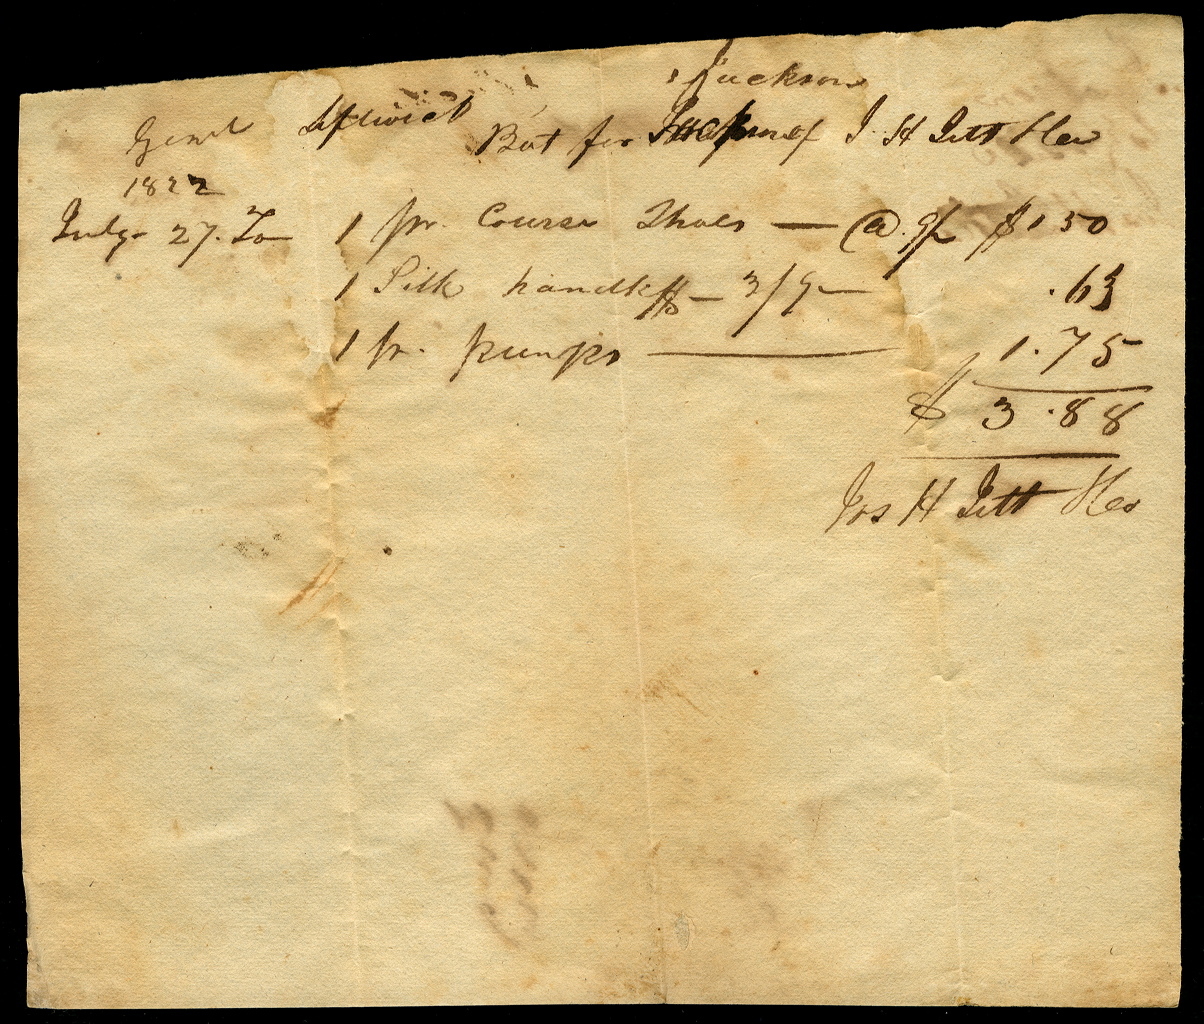 Jackson
Genl Leftwich Bot for of J. H Tett Hea
1822
July 27. To 1 pr. Course Shoes — @ 9/ $1.50
1 Silk handkff — 3/9 — .63
1 pr. pumps — 1.75
$ 3.88
Jos H Tett Hea